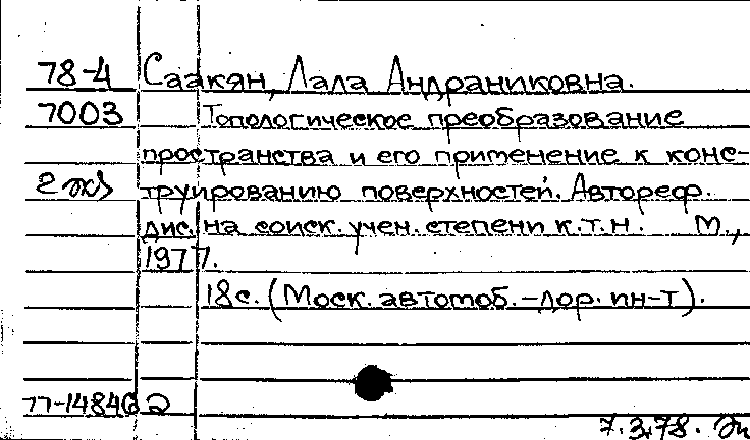 78-4 Саакян, Лала Андраниковна.
7003 Топологическое преобразование
пространства и его применение к конс-
2 экз труированию поверхностей. Автореф.
дис. на соиск. учен. степени к.т.н. М.,
1977.
18с. (Моск. автомоб.-дор. ин-т).
77-14846
7.3.78.